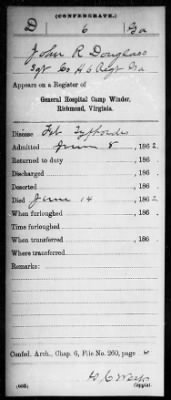 (CONFEDERATE.)
D 6 Ga
John R Douglass
Sgt Co A 6 Regt Ga
Appears on a Register of
General Hospital Camp Winder,
Richmond, Virginia.
Disease Feb Typhoides
Admitted June 8, 1862
Returned to duty , 186
Discharged , 186
Deserted , 186
Died June 14, 1862
When furloughed , 186
Time furloughed
When transferred , 186
Where transferred
Remarks:
Confed. Arch., Chap. 6, File No. 260, page
Copyist.